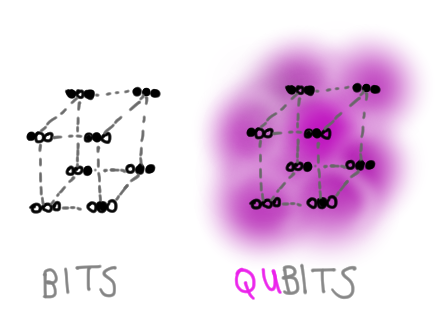 BITS
QUBITS